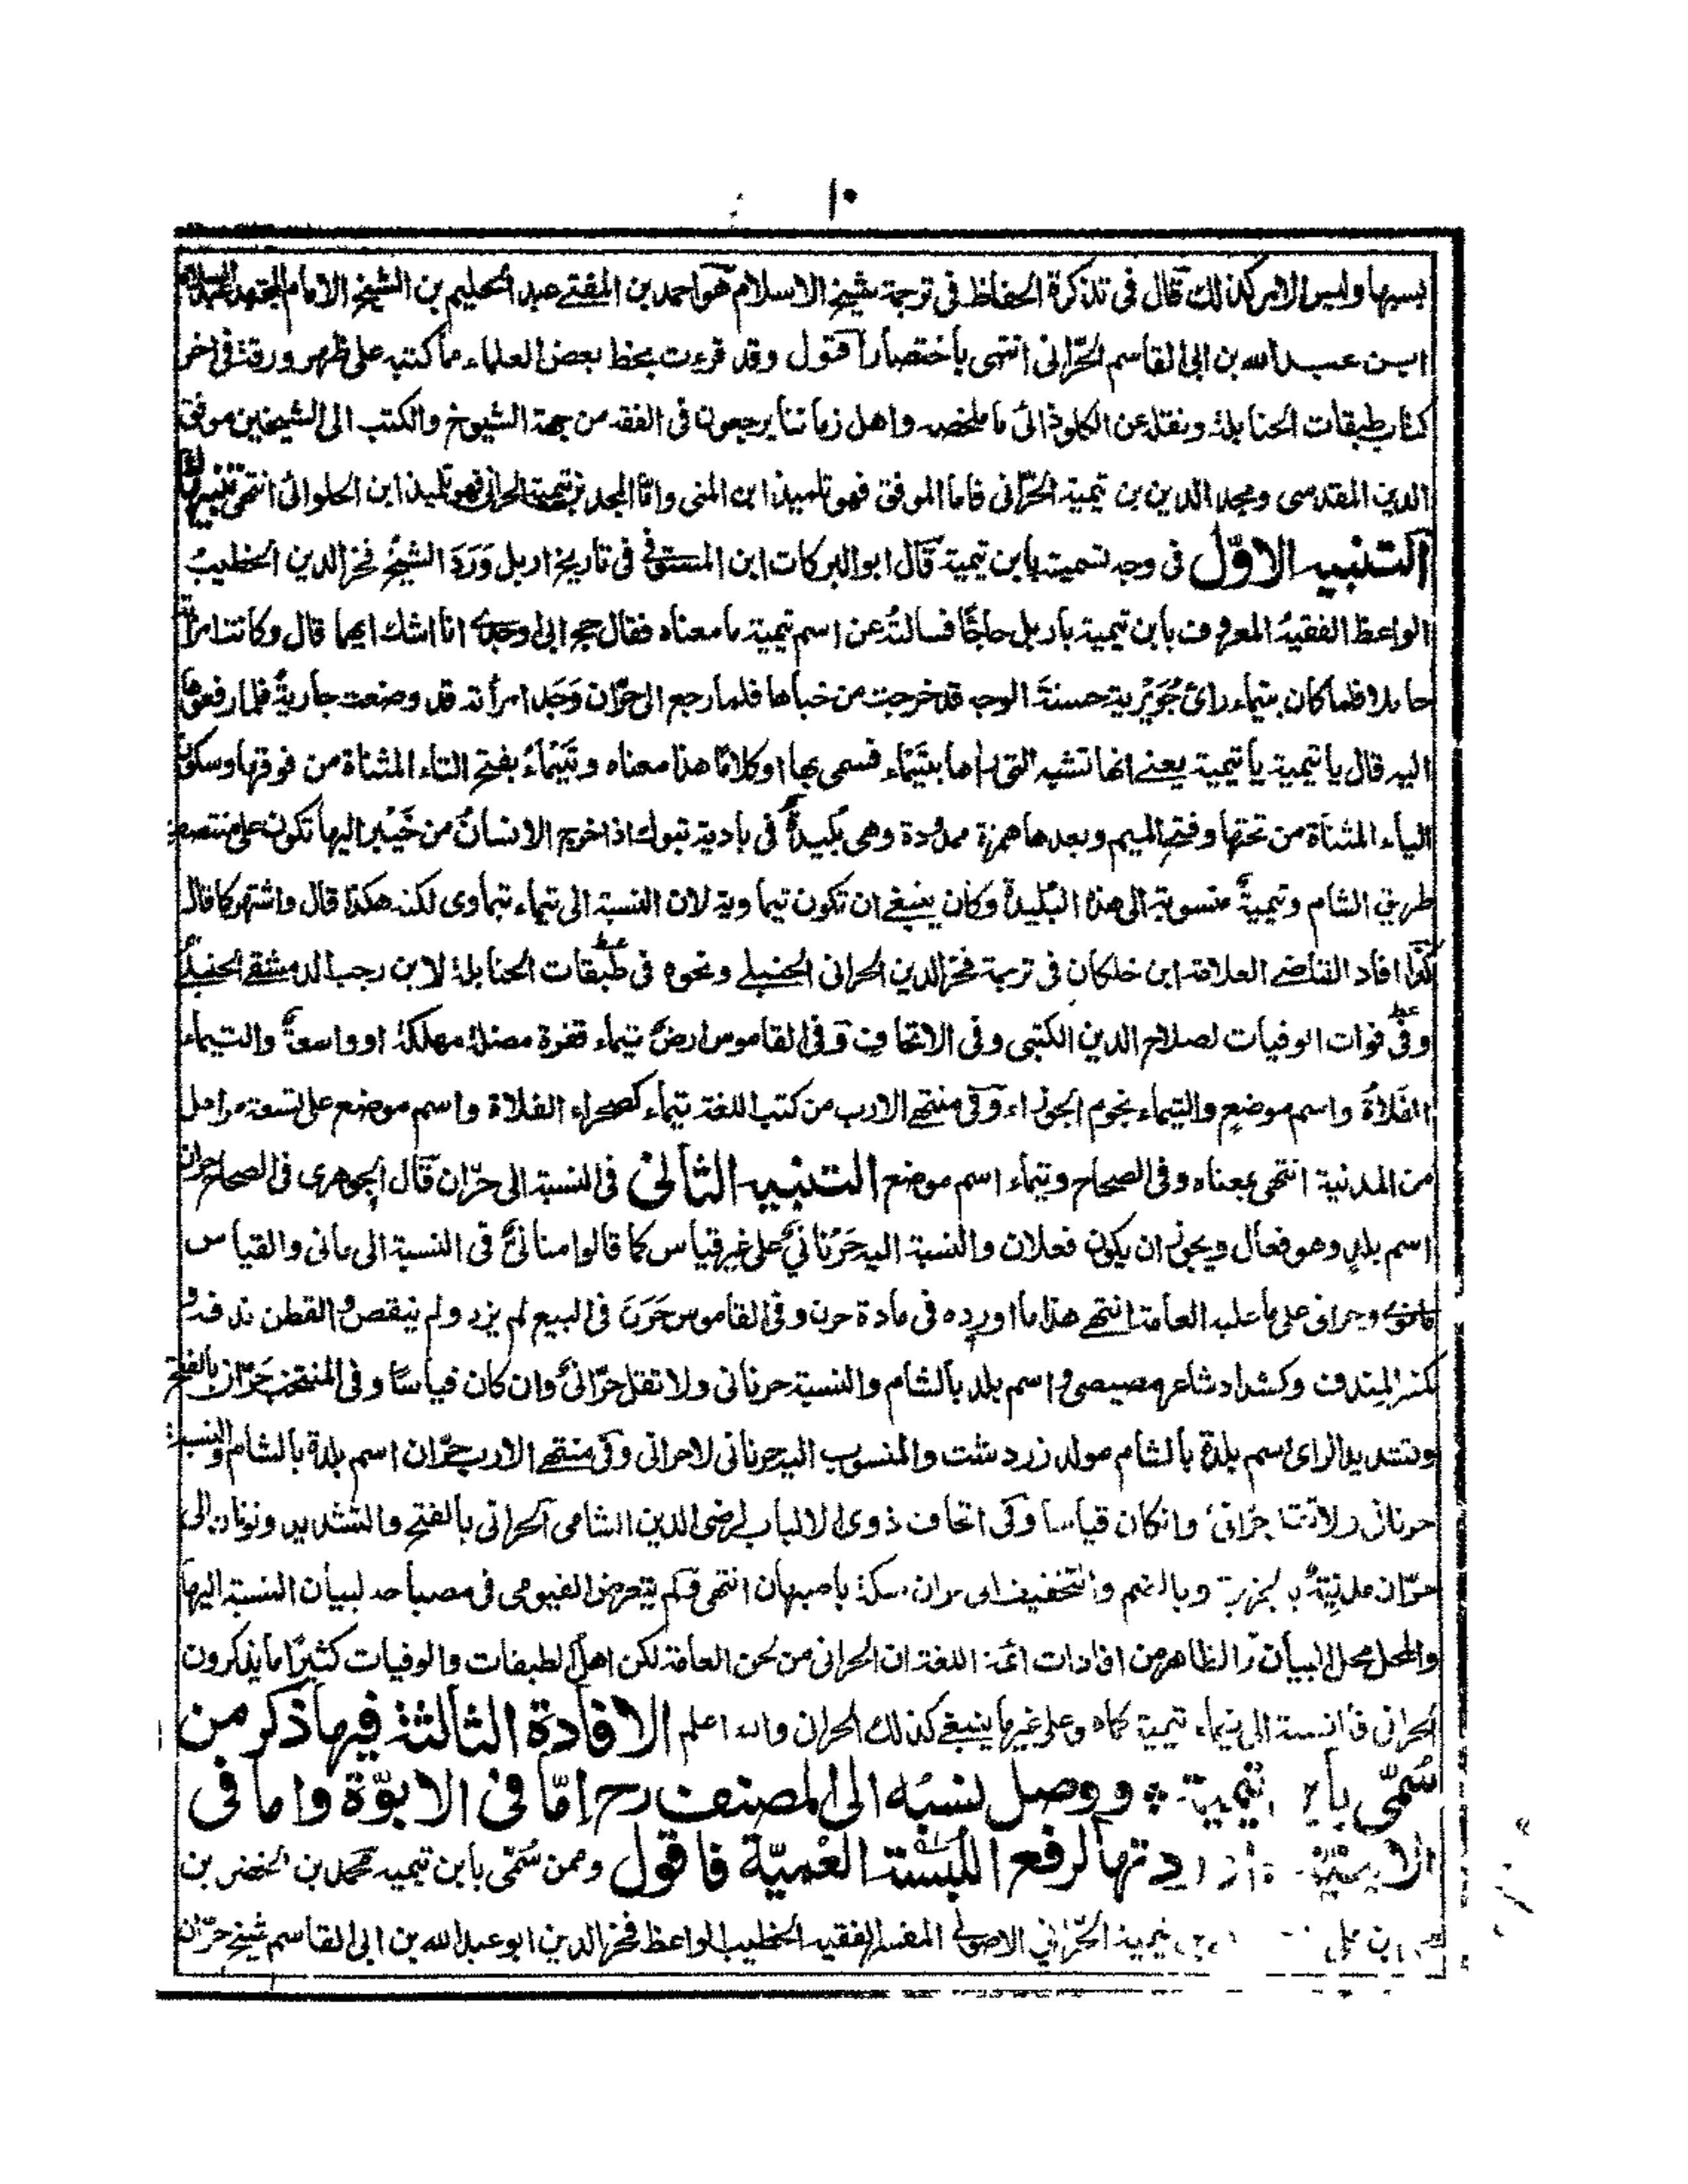 ١٠
بسببها وليس الامر كذلك قال فى تذكرة الحفاظ فى ترجمة شيخ الاسلام هو احمد بن المفتے عبد الحليم بن الشيخ الامام المجتهد عبد السلام
ابن عبد الله بن ابى القاسم الحرّانى انتهى باختصار اقول وقد قرءت بخط بعض العلماء ما كتبه على ظهر ورقة فى اخر
كتاب طبقات الحنابلة ونقله عن الكلوذانى ما ملخصه واهل زماننا يرجعون فى الفقه من جهة الشيوخ والكتب الى الشيخين موفق
الدين المقدسى ومجد الدين بن تيمية الحرّانى فاما الموفق فهو تلميذ ابن المنى وامّا المجد بن تيمية الحرانى فهو تلميذ ابن الحلوانى انتهى
التنبيه الاوّل فى وجه تسميته بابن تيمية قال ابو البركات ابن المستوفى فى تاريخ اربل وَرَدَ الشيخُ فخر الدين الخطيبُ
الواعظ الفقيهُ المعروف بابن تيمية باربل حاجًّا فسالتُه عن اسم تيمية ما معناه فقال حج ابى وجدى انا اشك ايهما قال وكانت امرأته
حاملا فلما كان بتيماء رائ جُوَيْرِية حسنةَ الوجه قد خرجت من خباءها فلما رجع الى حرّان وَجَد امرأته قد وضعت جاريةً فلما رفعوها
اليه قال يا تيمية يا تيمية يعنے انها تشبه التى راها بتَيْمَاء فسمى بها او كلامًا هذا معناه وتَيْمَاءُ بفتح التاء المثناة من فوقها وسكون
الياء المثناة من تحتها وفتح الميم وبعدها همزة ممدودة وهى بُليدةٌ فى بادية تبوك اذا خرج الانسانُ من خَيْبر اليها تكون على منتصف
طريق الشام وتيميةُ منسوبة الى هذا البُليدة وكان ينبغے ان تكون تيماوية لان النسبة الى تيماء تيماوى لكنه هكذا قال واشتهر كما قال
كذا افاد القاضے العلامة ابن خلكان فى ترجمة فخر الدين الحرانى الحنبلے ونحوه فى طبقات الحنابلة لابن رجب الدمشقے الحنبلے
وفى فوات الوفيات لصلاح الدين الكتبى وفى الاتحاف وفى القاموس ارضٌ تيماء قفرة مضلة مهلكة او واسعة والتيماء
الفَلاةُ واسم موضعٍ والتيماء نجوم الجوزاء وفى منتهى الارب من كتب اللغة تيماء كصحراء الفلاة واسم موضع على تسعة مراحل
من المدينة انتهى بمعناه وفى الصحاح وتيماء اسم موضع التنبيه الثانى فى النسبة الى حرّان قال الجوهرى فى الصحاح حران
اسم بلدٍ وهو فعال ويجوز ان يكون فعلان والنسبة اليه حَرْنَانيٌّ على غير قياس كما قالوا منانىٌّ فى النسبة الى مانى والقياس
مانوى وحرانى على ما عليه العامة انتهے هذا ما اورده فى مادة حرن وفى القاموس حَرَنَ فى البيع لم يزد ولم ينقص والقطن ندفه و
كمنبر المِندف وكشداد شاعر مصيصى و اسم بلد بالشام والنسبة حرنانى ولا تقل حرّانىٌ وان كان قياسًا وفى المنتخب حَرّان بالفتح
وتشديد الراى اسم بلدة بالشام مولد زردشت والمنسوب اليه حرنانى لا حرانى وفى منتهے الارب حرّان اسم بلدة بالشام والنسبة
حرنانى ولا تقل حرّانىٌ وانكان قياسا وفى اتحاف ذوى الالباب لرضى الدين الشامى الحرانى بالفتح والتشديد ونونان الى
حرّان مدينةٌ بالجزيرة وبالضم والتخفيف الى حران سكة باصبهان انتهى ولم يتعرض الفيومى فى مصباحه لبيان النسبة اليها
والمحل محل البيان والظاهر من افادات ائمة اللغة ان الحرانى من لحن العامة لكن اهل الطبقات والوفيات كثيرًا ما يذكرون
الحرانى فالنسبة الى تيماء تيمية كماه وعلى غير ما ينبغے كذلك الحران والله اعلم الافادة الثالثة فيها ذكر من
سُمّى بابن تيمية ووصل نسبُه الى المصنف رح إمّا فى الابوّة واما فى
الا اردتها لرفع اللبسة العُميّة فاقول وممن سُمّى بابن تيمية محمد بن الخضر بن
بن تيمية الحرّاني الاصولى المفسر الفقيه الخطيب الواعظ فخر الدين ابو عبد الله بن ابى القاسم شيخ حرّان